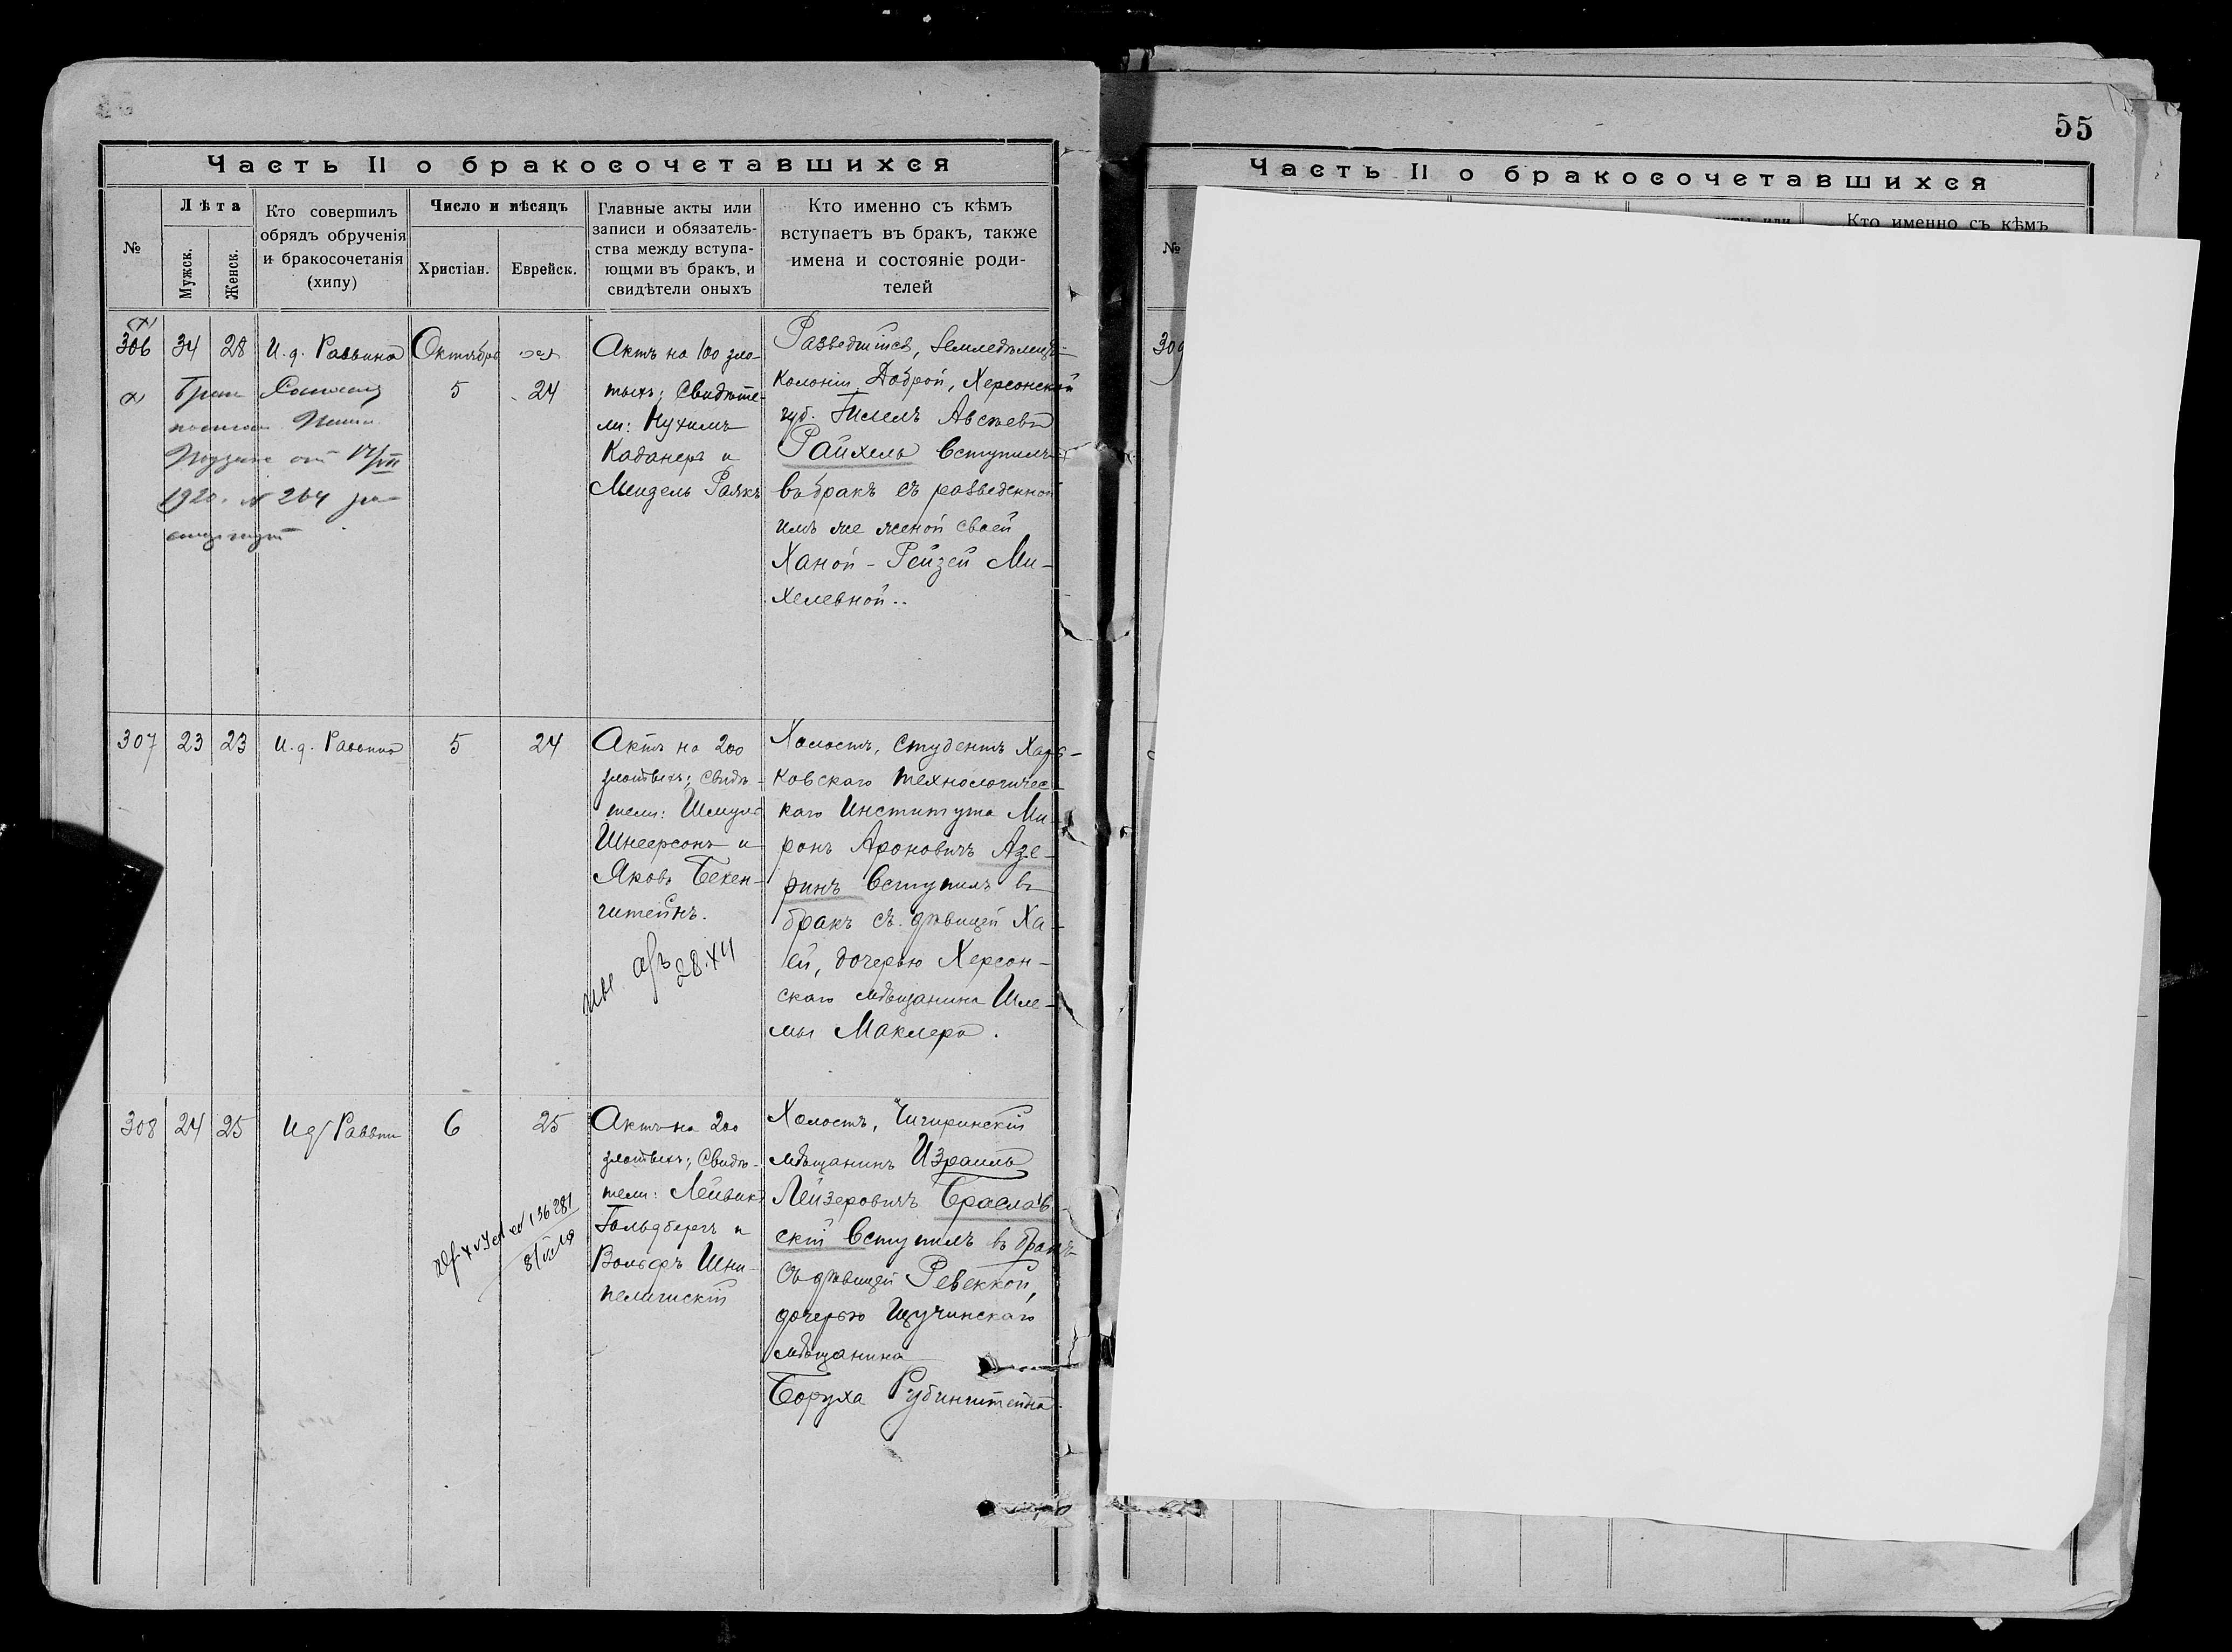 55
Часть II о бракосочетавшихся
№
Лѣта
Мужск.
Женск.
Кто совершилъ
обрядъ обрученія
и бракосочетанія
(хипу)
Число и мѣсяцъ
Христіан.
Еврейск.
Главные акты или
записи и обязатель-
ства между вступа-
ющми въ бракъ, и
свидѣтели оныхъ
Кто именно съ кѣмъ
вступаетъ въ бракъ, также
имена и состояніе роди-
телей
306
34
28
И. д. Раввина
Октябрь
5
24
Актъ на 100 зло-
тыхъ; Свидѣте-
ли: Нухимъ
Каданеръ и
Мендель Раякъ
Разведшійся, Земледѣлецъ
колоніи Доброй, Херсонской
губ. Гилель Авсѣевъ
Райхель вступилъ
въ бракъ съ разведенной
имъ же женой своей
Ханой-Рейзей Ми-
хелевной..
1920. № 264
307
23
23
И. д. Раввина
5
24
Актъ на 200
злотыхъ; Свидѣ-
тели: Шмуль
Шнеерсонъ и
Яковъ Бекен-
штейнъ.
28.XII
Холостъ, студентъ Харь-
ковскаго Технологичес-
каго Института Ми-
ронъ Ароновичъ Азе-
ринъ вступилъ въ
бракъ съ дѣвицей Ха-
ей, дочерью Херсон-
скаго мѣщанина Шле-
мы Маклера.
308
24
25
И д/ Раввин
6
25
Актъ на 200
злотыхъ; Свидѣ-
тели: Лейвикъ
Гольдбергъ и
Вольфъ Шни-
пелишскій
136281
Холостъ, Чигиринскій
мѣщанинъ Израиль
Лейзеровичъ Браслав-
скій вступилъ въ бракъ
съ дѣвицей Ревеккой,
дочерью Щучинскаго
мѣщанина
Боруха Рубинштейна.
Часть II о бракосочетавшихся
№
Кто именно съ кѣмъ
309